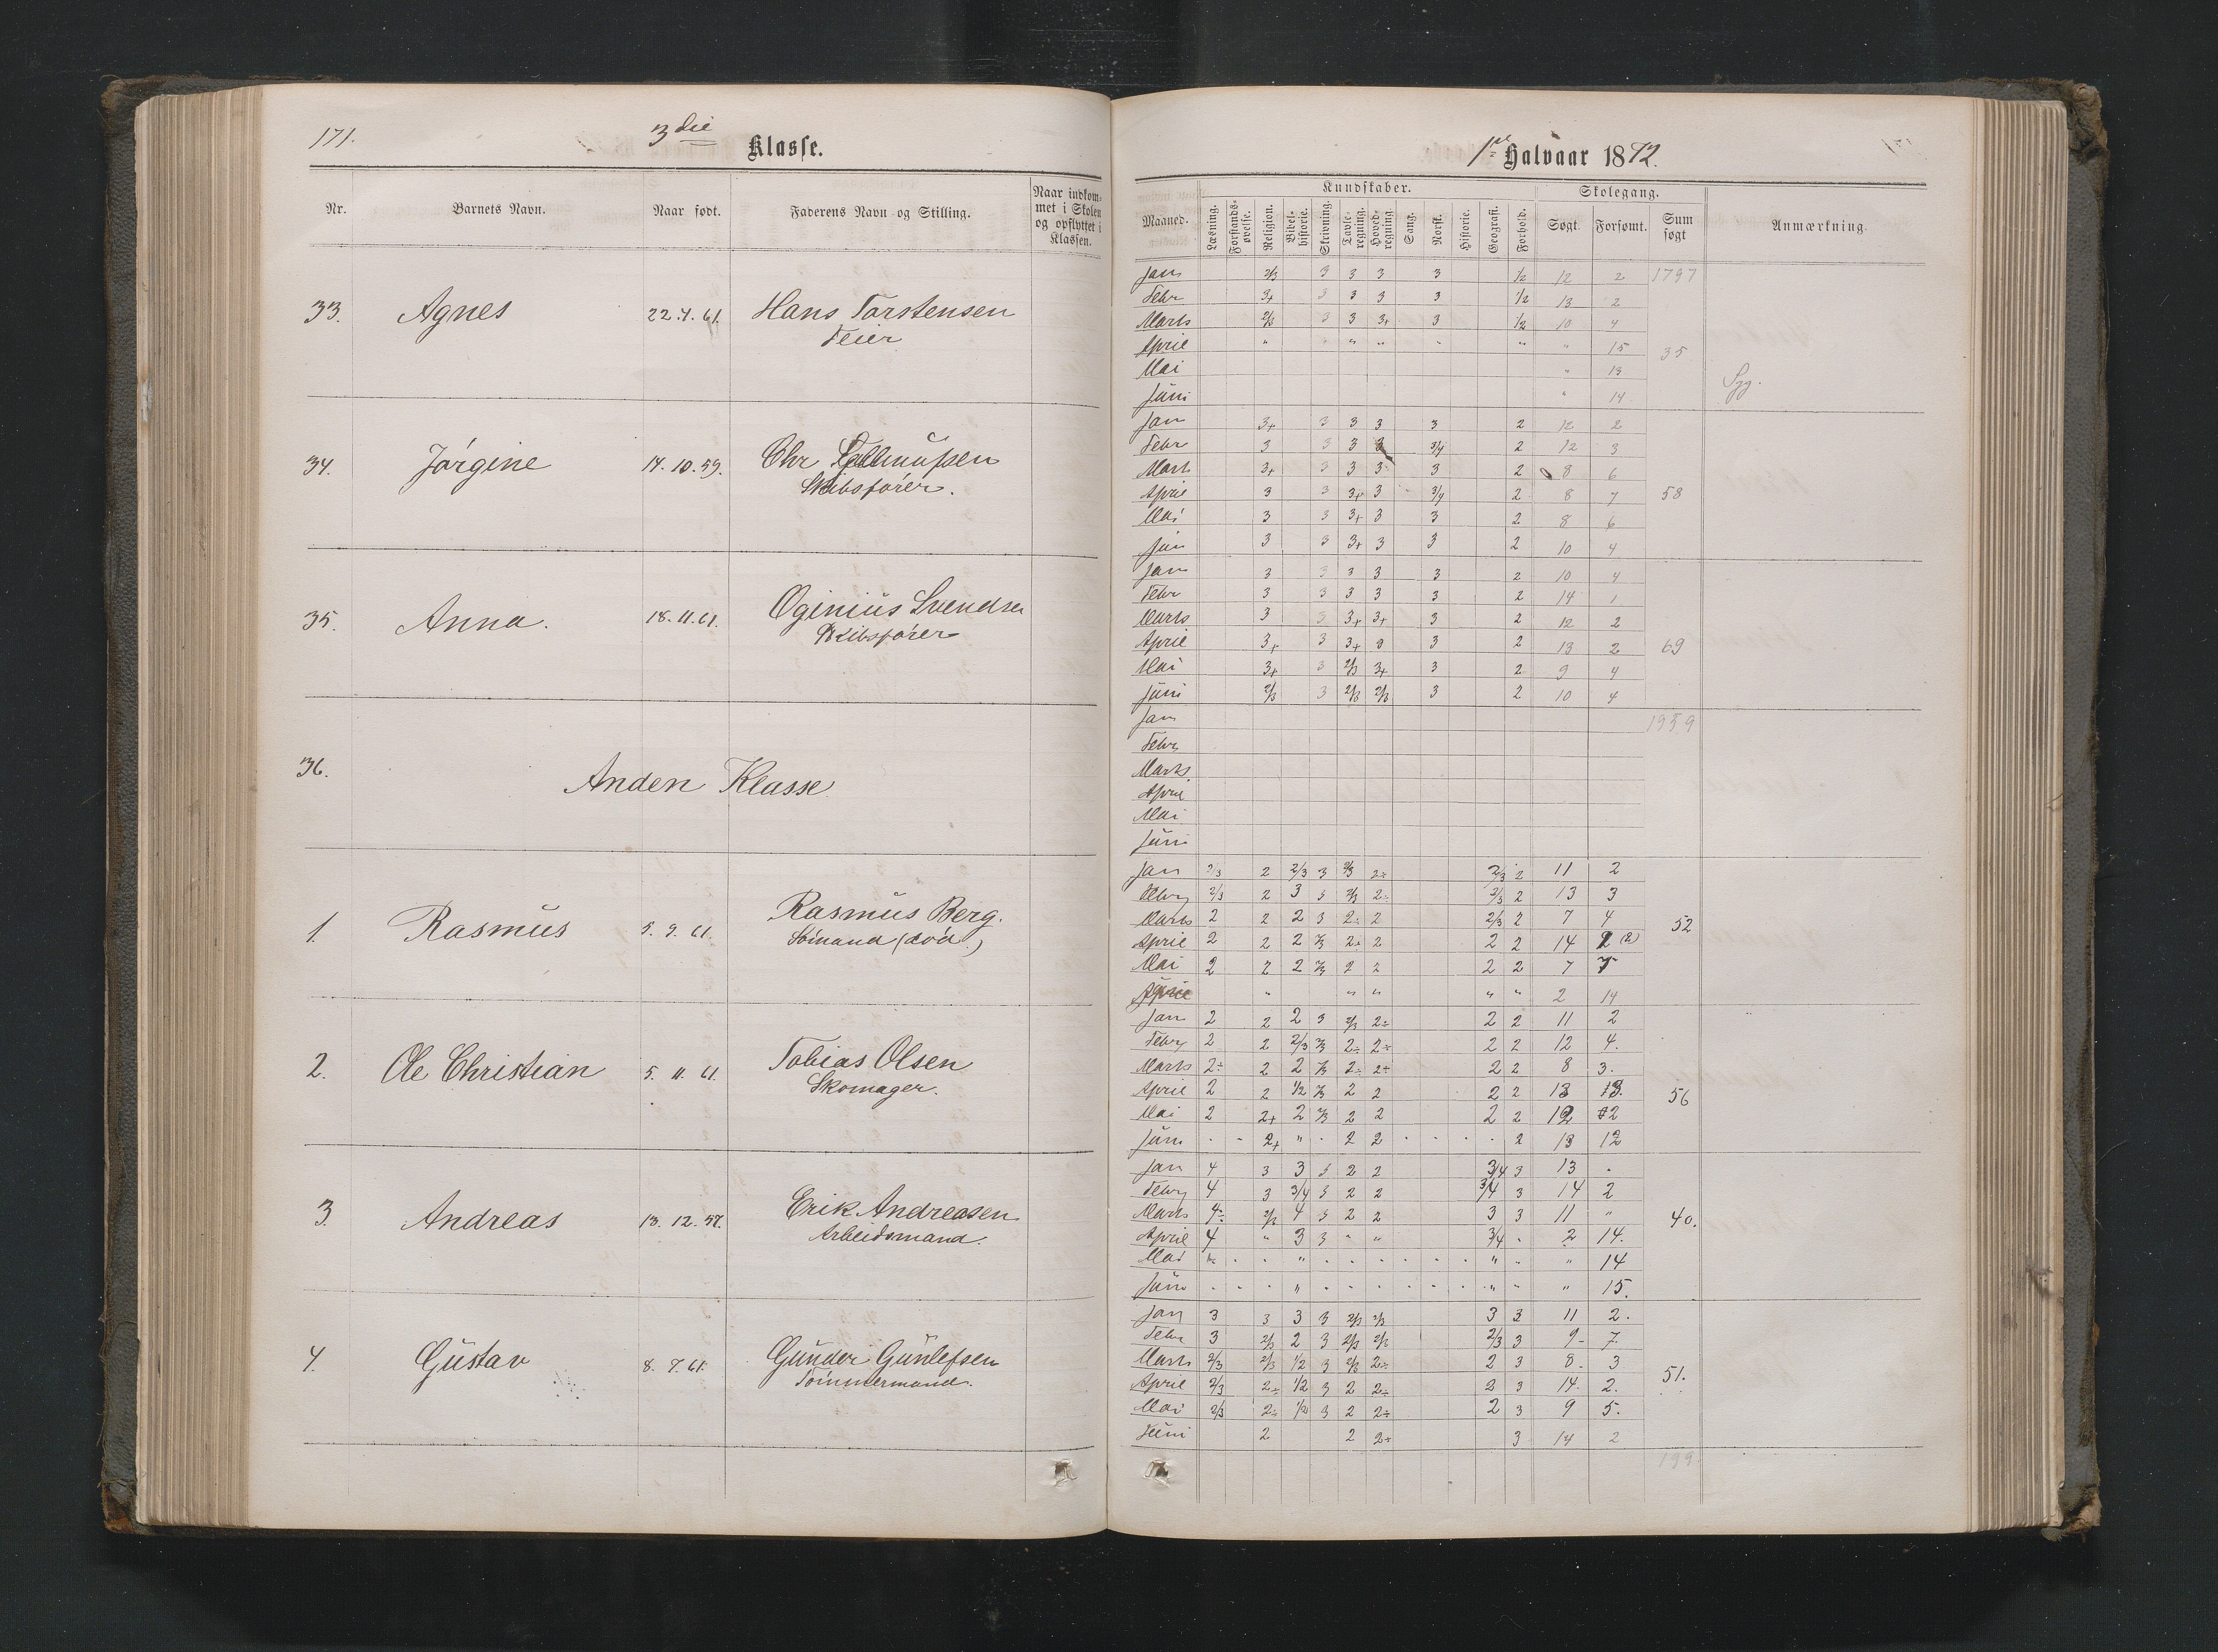 171.
3die
Klasse.
Nr.
Barnets Navn.
Naar født.
Faderens Navn og Stilling.
Naar indkom-
met i Skolen
og opflyttet i
Klassen.
33. Agnes 22.4.61. Hans Torstensen
Feier
34. Jørgine 14.10.59. Chr
Skibsfører.
35. Anna. 18.11.61. Oginius Svendsen
Skibsfører
36.
Anden Klasse
1. Rasmus 5.9.61. Rasmus Berg.
Sömand (död.)
2. Ole Christian 5.11.61. Tobias Olsen
Skomager.
3. Andreas 13.12.57. Erik Andreasen
Arbeidsmand.
4. Gustav 8.7.61. Gunder Gunlefsen
Tömmermand.
1ste Halvaar 1872.
Kundskaber.
Skolegang.
Maaned.
Læsning.
Forstands-
øvelse.
Religion.
Bibel-
historie.
Skrivning.
Tavle-
regning.
Hoved-
regning.
Sang.
Norsk.
Historie.
Geografi.
Forhold.
Søgt.
Forsømt.
Sum
søgt
Anmærkning.
Jan 2/3 3 3 3 3 1/2 12 2 1797
Febr 3+ 3 3 3 3 1/2 13 2
Marts 2/3 3 3 3+ 3 1/2 10 4
April " " " " " " " 15 35
Mai " 13
Juni " 14 Syg.
Jan 3+ 3 3 3 3 2 12 2
Febr 3 3 3 3 3/4 2 12 3
Mart 3+ 3 3 3 3 2 8 6
April 3 3 3+ 3 3/4 2 8 7 58
Mai 3 3 3+ 3 3 2 8 6
Jun 3 3 3+ 3 3 2 10 4
Jan 3 3 3 3 3 2 10 4
Febr 3 3 3 3 3 2 14 1
Marts 3 3 3+ 3+ 3 2 12 2
April 3+ 3 3+ 3 3 2 13 2 69
Mai 3+ 3 2/3 3+ 3 2 9 4
Juni 2/3 3 2/3 2/3 3 2 10 4
Jan 1959
Febr
Marts.
April
Mai
Juni
Jan 2/3 2 2/3 3 2/3 2÷ 2/3 2 11 2
Febry 2/3 2 3 3 2/3 2÷ 2/3 2 13 3
Marts 2 2 2 3 2÷ 2 2/3 2 7 4 52
April 2 2 2 2/3 2÷ 2 2 2 14 2 (2)
Mai 2 2 2 2/3 2 2 2 2 7 7
" " " " " 2 14
Jan 2 2 2 3 2/3 2÷ 2 2 11 2
Febry 2 2 2/3 2/3 2÷ 2÷ 2 2 12 4.
Marts 2÷ 2 2 2/3 2÷ 2÷ 2 2 8 3.
April 2 2 1/2 2/3 2 2 2 2 13 3. 56
Mai 2 2+ 2 2/3 2 2 2 2 12 2
Juni 2+ " 2 2 2 13 12
Jan 4 3 3 3 2 2 3/4 3 13 .
Febry 4 3 3/4 3 2 2 3/4 3 14 2
Marts 4÷ 2/3 4 3 2 2 3 3 11 " 40.
April 4 " 3 3 " " 3/4 . 2 14.
Mai " " " " " 14
Juni " " " " 15.
Jan 3 3 3 3 2/3 2/3 3 3 11 2.
Febr 3 2/3 2 3 2/3 2/3 2/3 3 9 7.
Marts 2/3 2/3 1/2 3 2/3 2÷ 2 3 8 3 51.
April 2/3 2÷ 1/2 3 2 2÷ 2 3 14. 2.
Mai 2/3 2÷ 1/2 3 2 2÷ 2 3 9 5.
Juni 2 2 2÷ 3 14 2
199